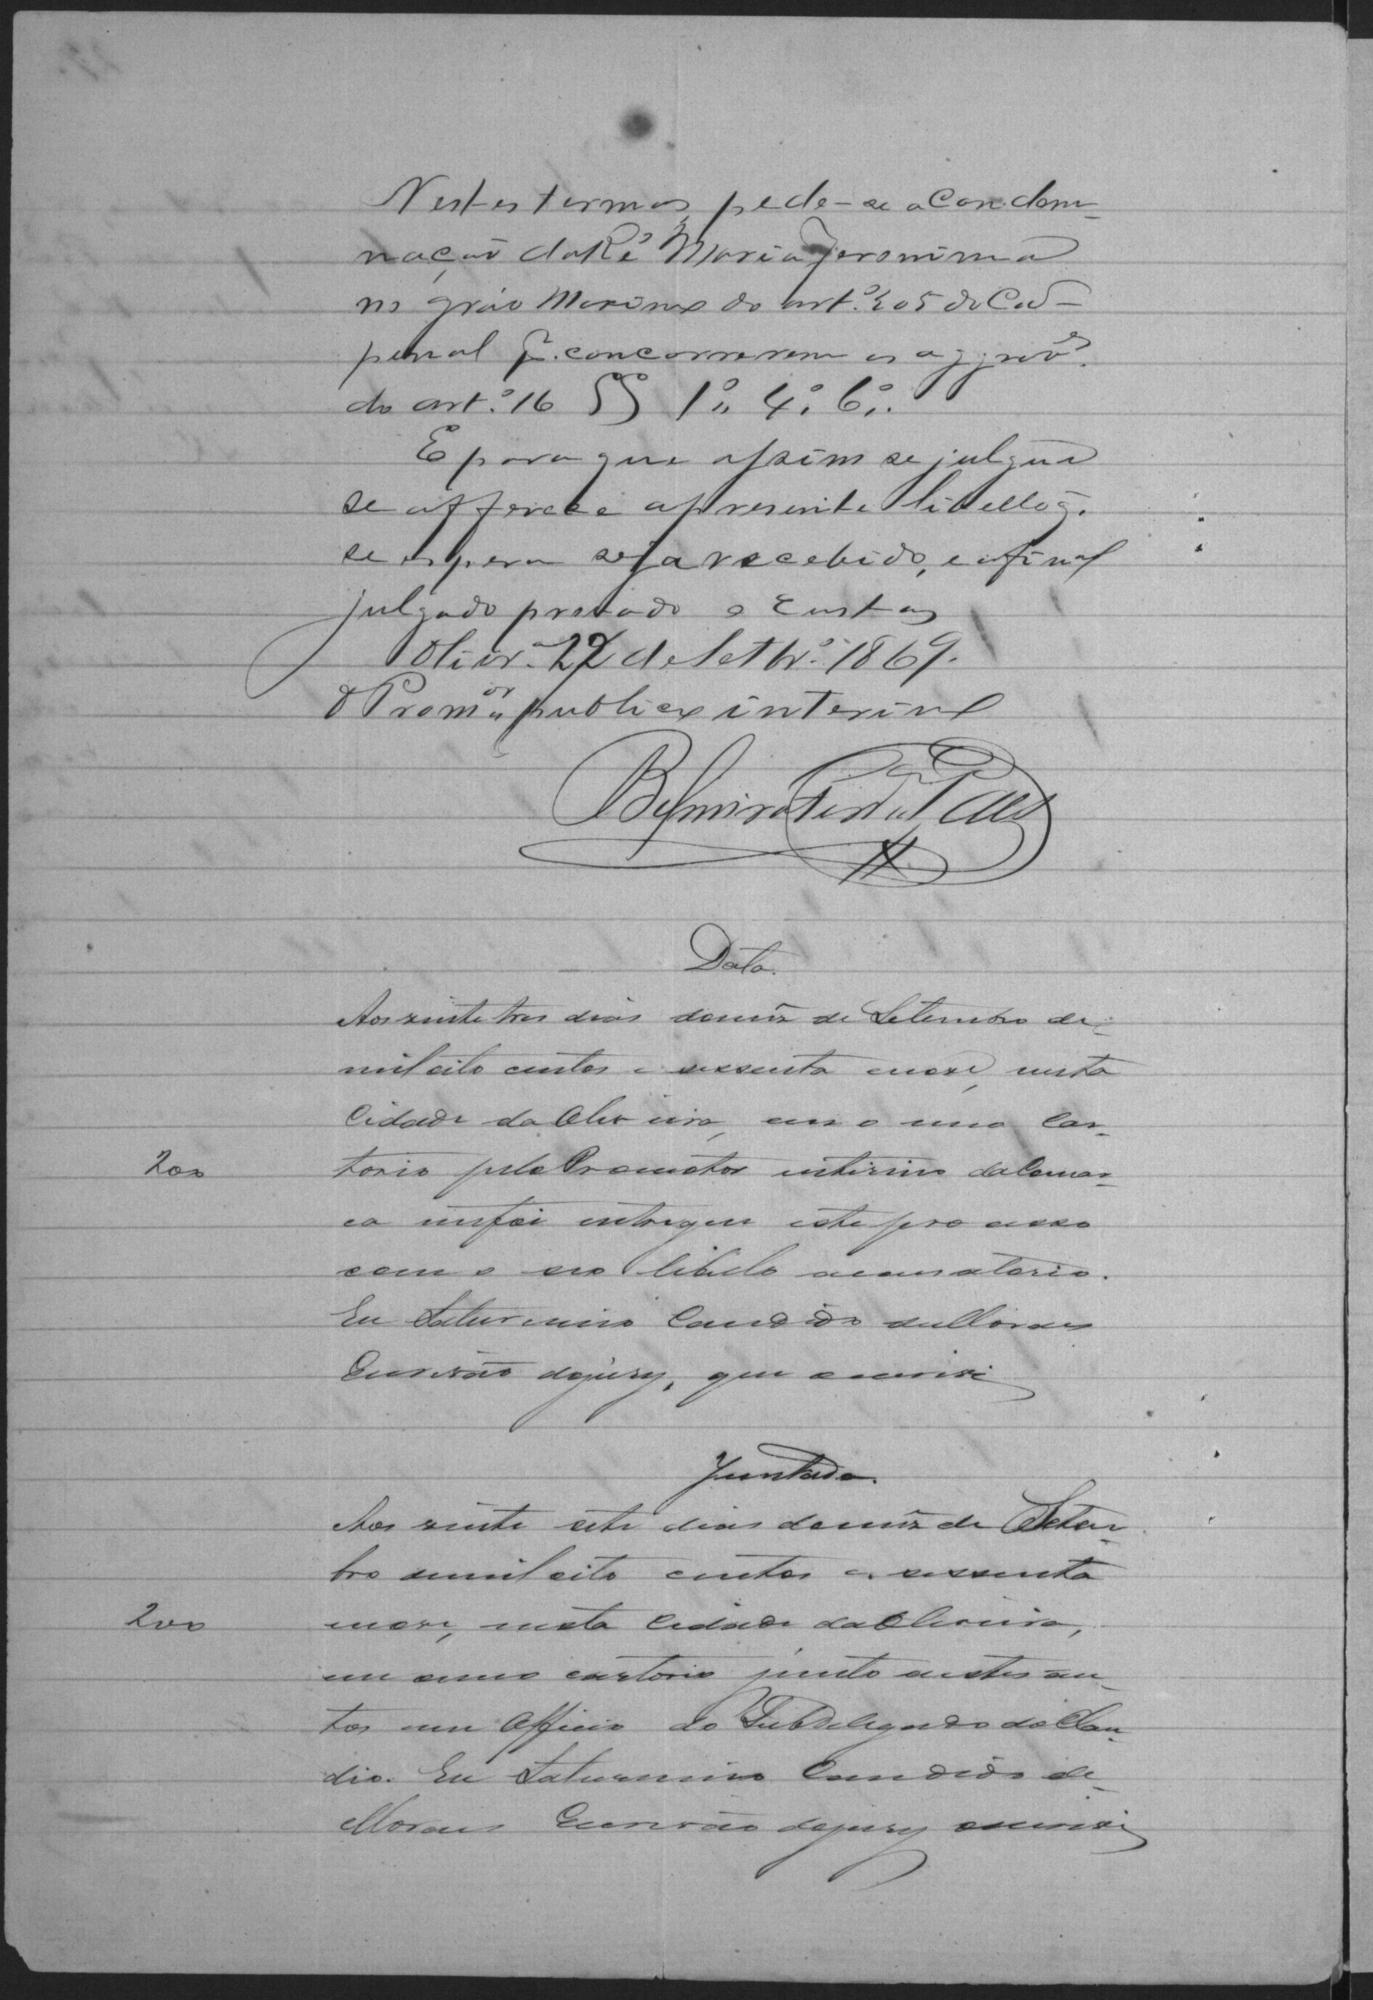 Nestes termos, pede-se a condem-
nação da Ré Maria Jeronima
no gráo Maximo do art.º 205 do Cod-
penal p.r concorrerem as aggrav.es
do art.º 16 §§ 1.º 4.º 6.º.
E para que assim se julgue
se offerece a presente libello q.
se espera seja recebido, e afinal
julgado provado e Custas
Olivr.ª 22 de Setbr.º 1869.
O Prom.or publico interino
Belmiro
Data.
Aos vinte tres dias do mez de Setembro de
mil oito centos e sessenta e nove, nesta
Cidade da Oliveira, em o meu Car-
200
torio pelo Promotor interino da Comar-
ca me foi entregue este processo
com o seo libello accusatorio.
Eu Saturnino Candido de Moraes
Escrivão do jury, que escrevi
Juntada.
Aos vinte sete dias do mez de Setem-
bro de mil oito centos e sessenta
200
e nove, nesta Cidade da Oliveira,
em o meu cartorio junto a estes au-
tos um Officio do Subdelegado do Clau-
dio. Eu Saturnino Candido de
Moraes Escrivão do jury escrevi